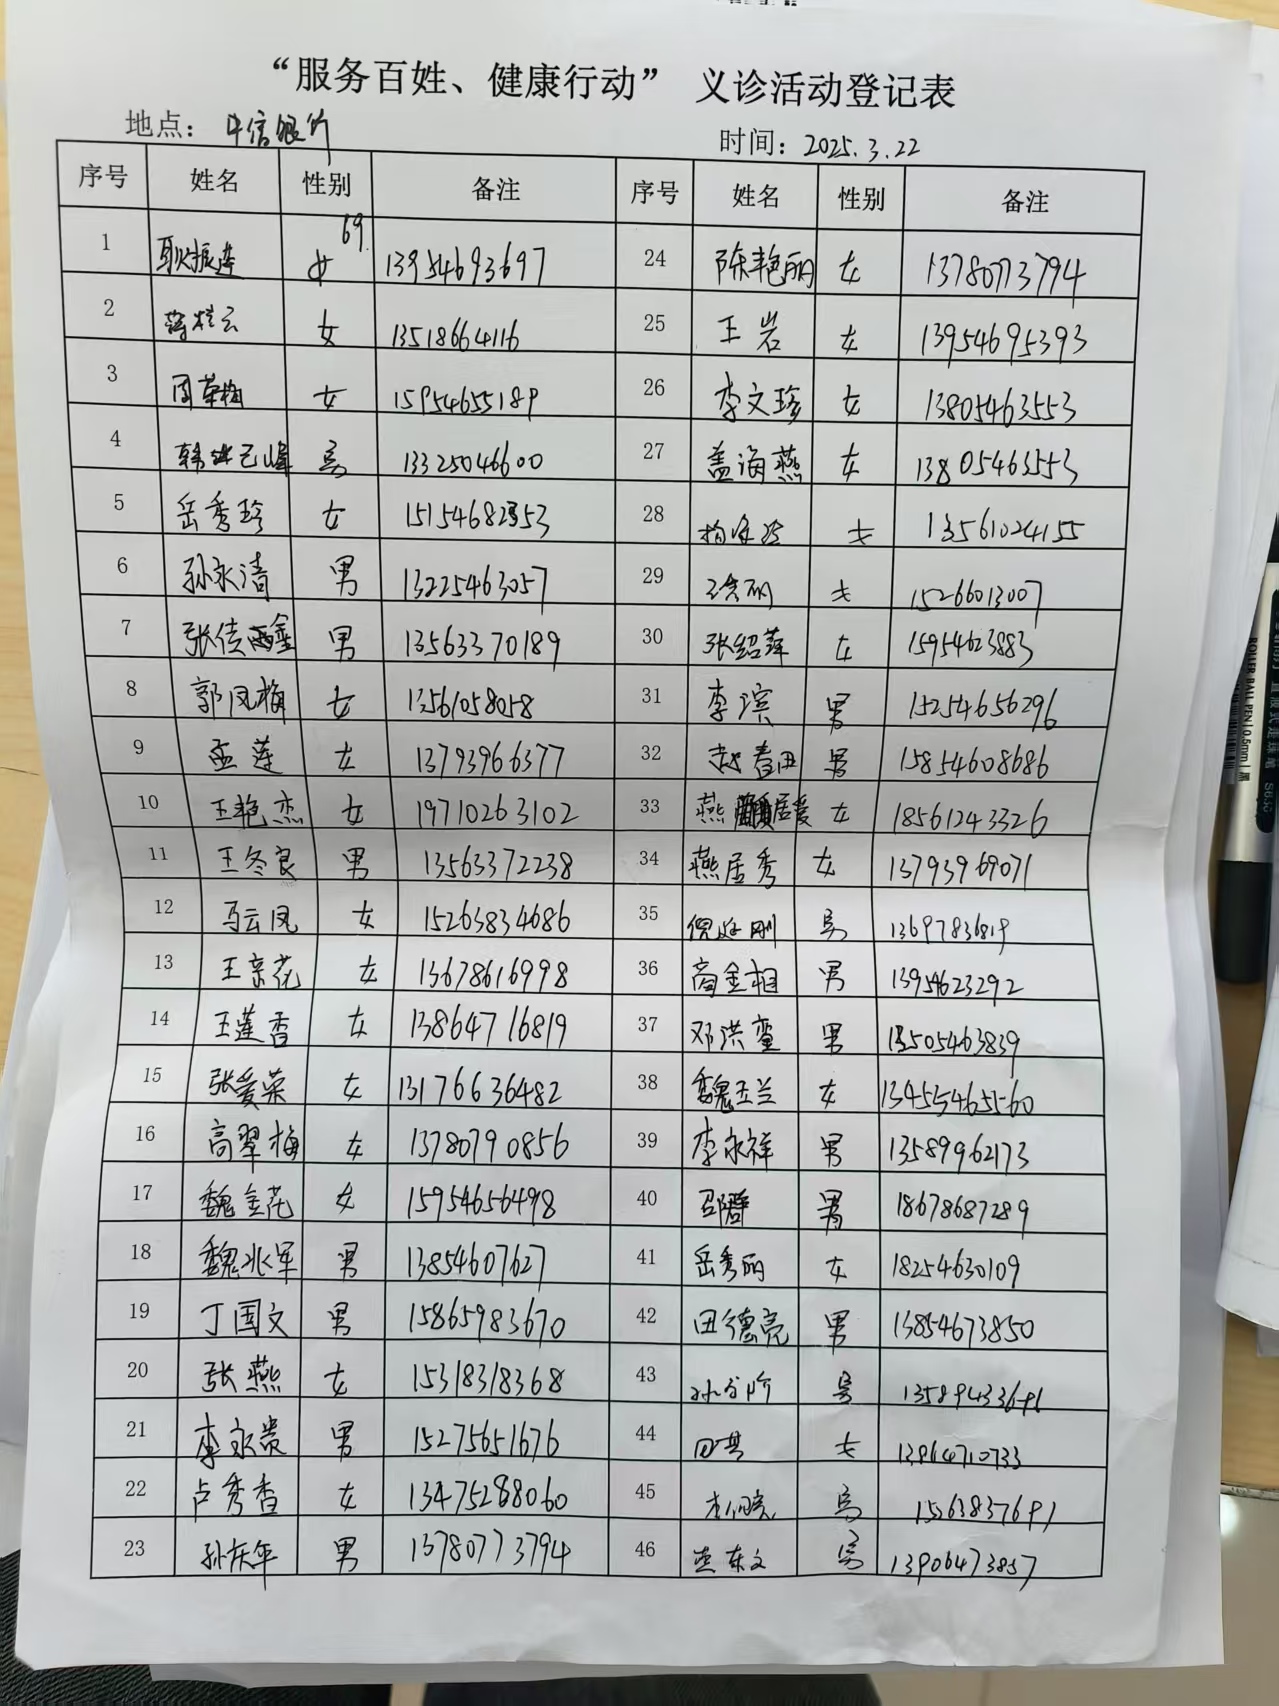 “服务百姓、健康行动” 义诊活动登记表
地点：中信银行 时间：2025.3.22
序号 姓名 性别 备注 序号 姓名 性别 备注
1 耿振莲 女 69. 13954693697 24 陈艳丽 女 13780773794
2 蒋兰云 女 13518664116 25 王岩 女 13954695393
3 周苹梅 女 15954655189 26 李文珍 女 13805463553
4 韩 峰 男 13325046600 27 盖海燕 女 13805463553
5 岳秀珍 女 15154682353 28 女 13561024155
6 孙永清 男 13225463057 29 女 15266013007
7 张佳鑫 男 13563370189 30 张绍萍 女 15954623883
8 郭凤梅 女 13561058058 31 李滨 男 15254656296
9 孟莲 女 13793966377 32 赵春田 男 15854608686
10 王艳杰 女 19710263102 33 燕居爱 女 18561243326
11 王冬良 男 13563372238 34 燕居秀 女 13793969071
12 马云凤 女 15263834686 35 倪 刚 男 13697836819
13 王亲花 女 13678616998 36 商金相 男 13954623292
14 王莲香 女 13864716819 37 邓洪 男 13505463839
15 张爱荣 女 13176636482 38 魏玉兰 女
16 高翠梅 女 13780790856 39 李永祥 男 13589962173
17 魏金花 女 15954656498 40 邵群 男 18678687289
18 魏兆军 男 13854607627 41 岳秀丽 女 18254630109
19 丁国文 男 15865983670 42 田德亮 男 13854673850
20 张燕 女 15318318368 43 男
21 李永贵 男 15275651676 44 田 女 13864710733
22 卢秀香 女 13475288060 45 男
23 孙庆年 男 13780773794 46 东文 男 13906473857
ROLLER BALL PEN 0.5mm 黑
直液式走珠笔